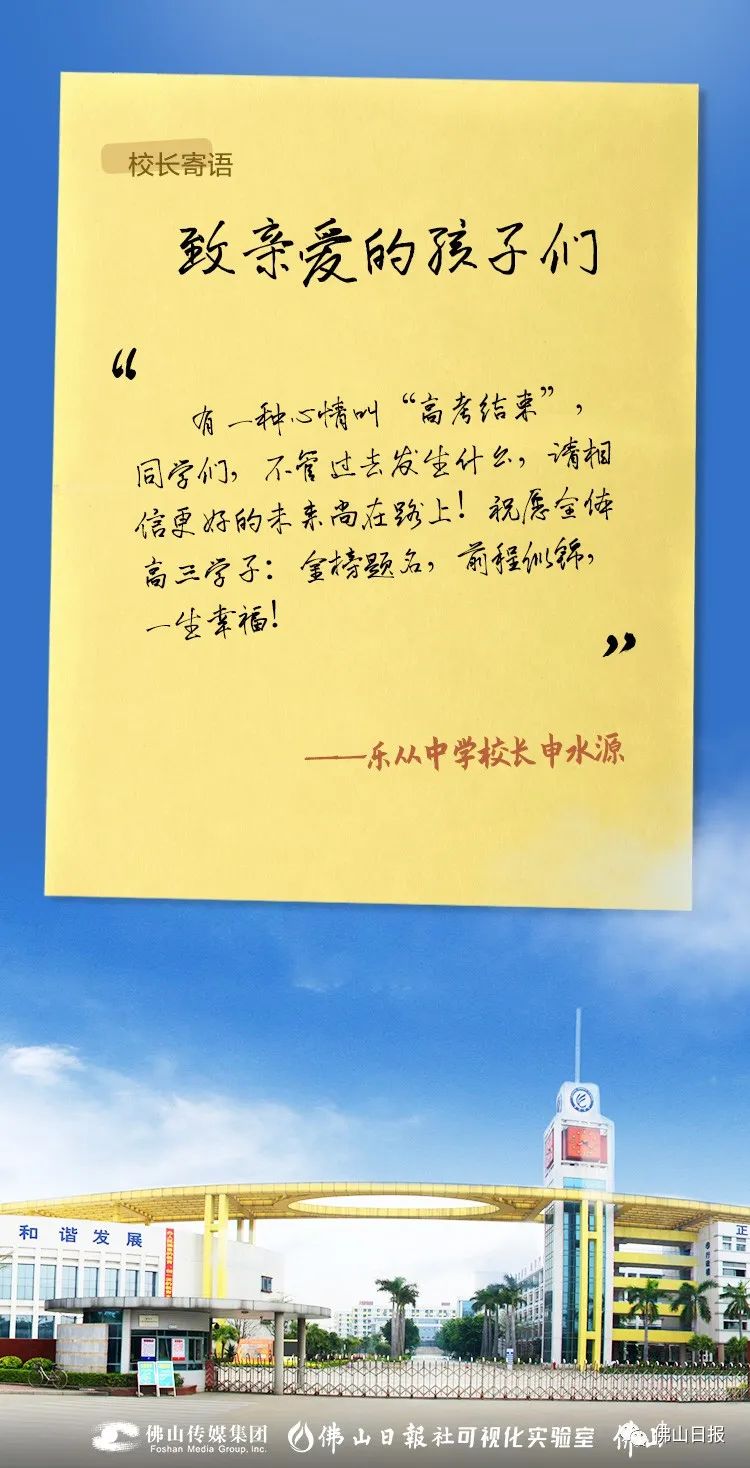 校长寄语
致亲爱的孩子们
“
有一种心情叫“高考结束”，
同学们，不管过去发生什么，请相
信更好的未来尚在路上！祝愿全体
高三学子：金榜题名，前程似锦，
一生幸福！
”
——乐从中学校长申水源
和谐发展
正
佛山传媒集团
Foshan Media Group, Inc.
佛山日报社可视化实验室
佛山
佛山日报